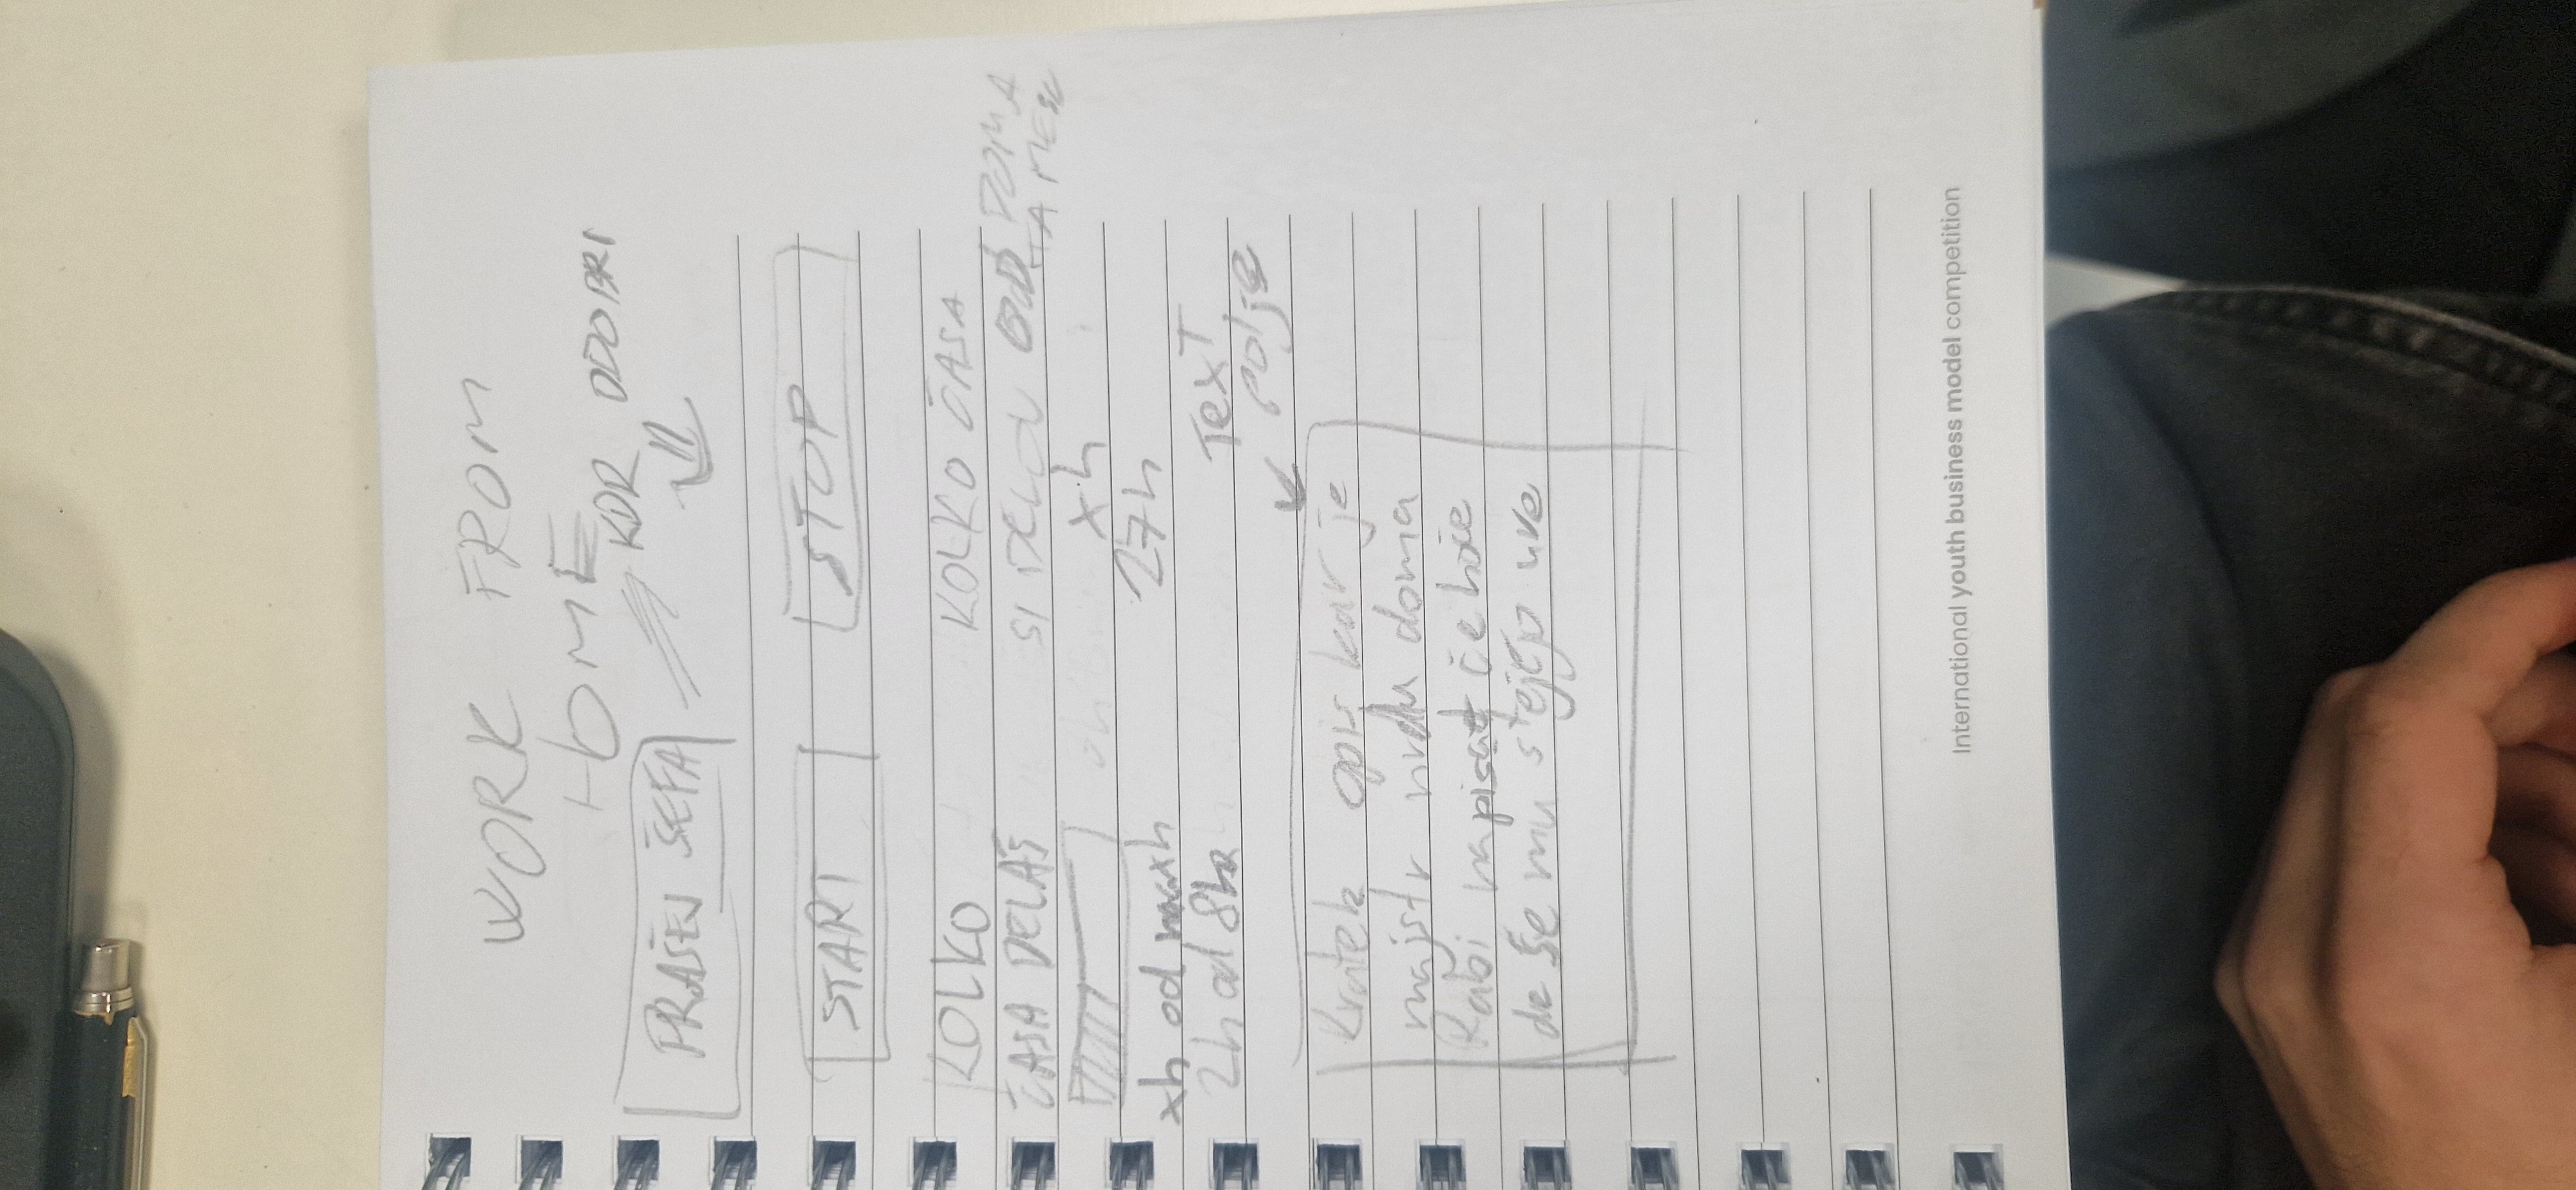 WORK FROM
HOME
KDR ODOBRI
PRAŠEJ ŠEFA
START
STOP
KOLKO
ČASA DELAŠ
xh od maxh
2h od 8h
KOLKO ČASA
SI DELOU OD DOMA
TA MESC
xh
27h
TexT
polje
Kratek opis kar je
majstr nrdu doma
Rabi napisat če hoče
de se mu štejejo ure
International youth business model competition